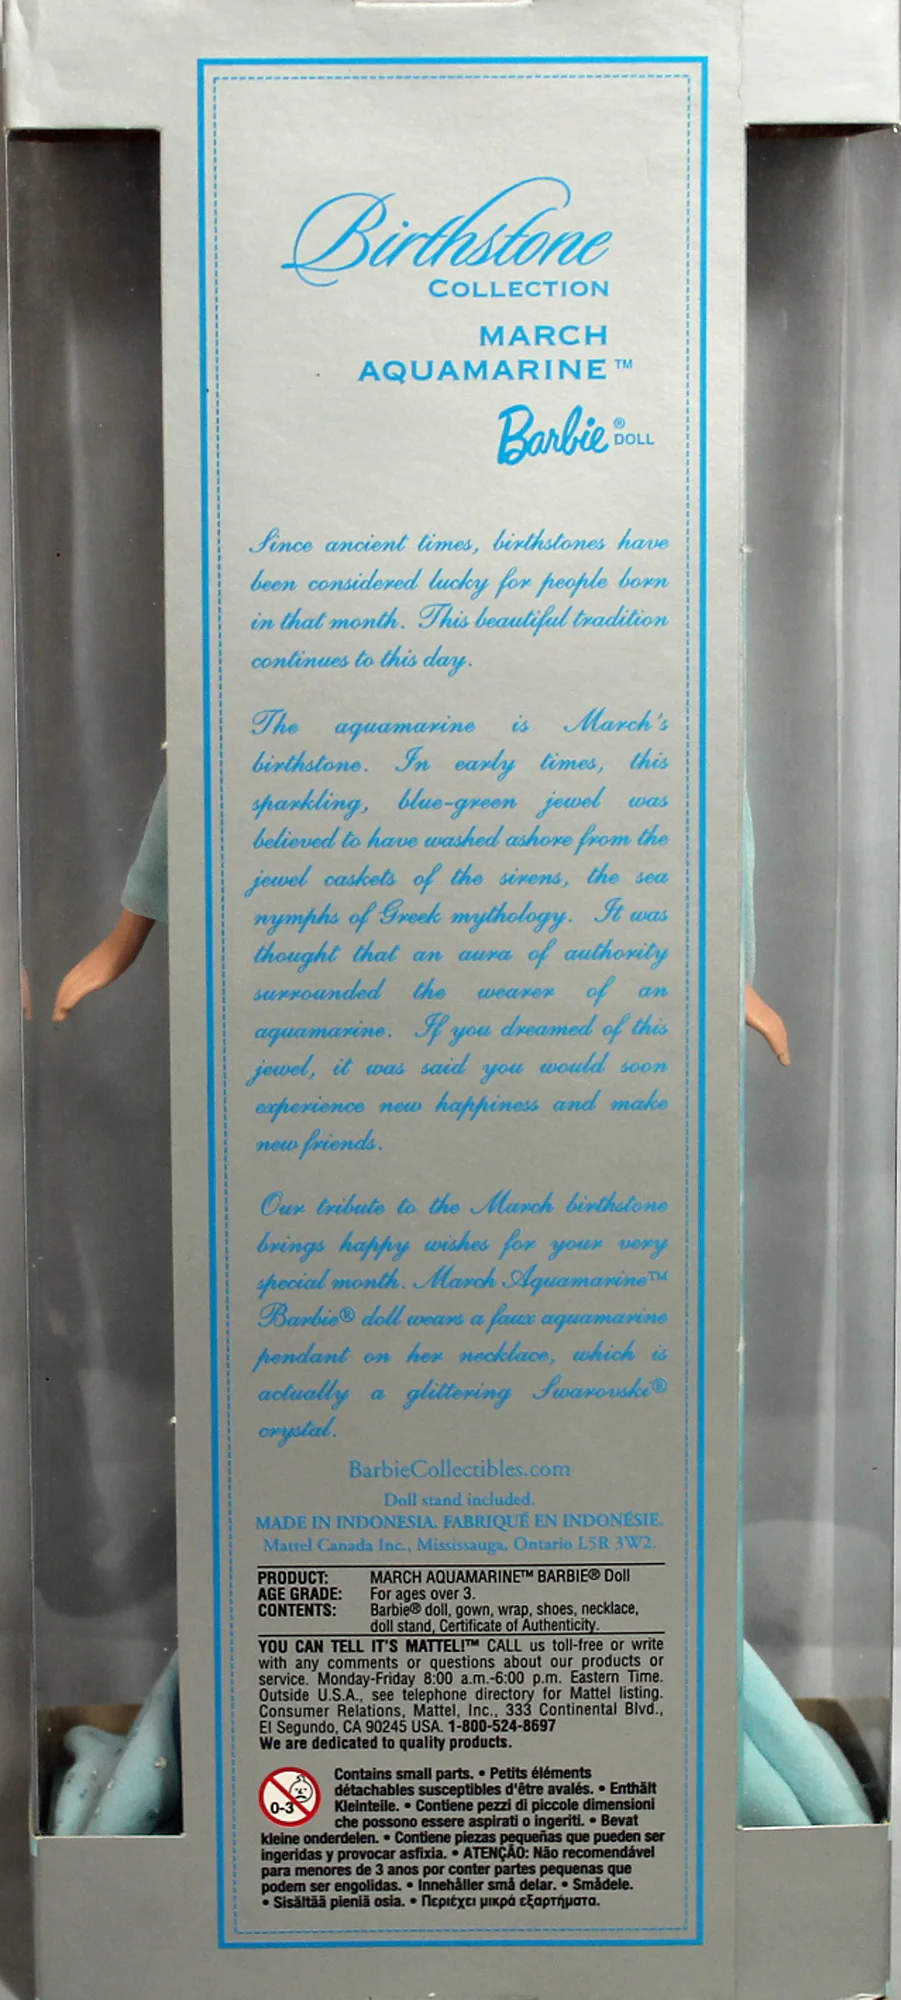 Birthstone
COLLECTION
MARCH
AQUAMARINE™
Barbie® DOLL
Since ancient times, birthstones have
been considered lucky for people born
in that month. This beautiful tradition
continues to this day.
The aquamarine is March's
birthstone. In early times, this
sparkling, blue-green jewel was
believed to have washed ashore from the
jewel caskets of the sirens, the sea
nymphs of Greek mythology. It was
thought that an aura of authority
surrounded the wearer of an
aquamarine. If you dreamed of this
jewel, it was said you would soon
experience new happiness and make
new friends.
Our tribute to the March birthstone
brings happy wishes for your very
special month. March Aquamarine™
Barbie® doll wears a faux aquamarine
pendant on her necklace, which is
actually a glittering Swarovski®
crystal.
BarbieCollectibles.com
Doll stand included.
MADE IN INDONESIA. FABRIQUÉ EN INDONÉSIE.
Mattel Canada Inc., Mississauga, Ontario L5R 3W2.
PRODUCT: MARCH AQUAMARINE™ BARBIE® Doll
AGE GRADE: For ages over 3.
CONTENTS: Barbie® doll, gown, wrap, shoes, necklace,
doll stand, Certificate of Authenticity.
YOU CAN TELL IT'S MATTEL!™ CALL us toll-free or write
with any comments or questions about our products or
service. Monday-Friday 8:00 a.m.-6:00 p.m. Eastern Time.
Outside U.S.A., see telephone directory for Mattel listing.
Consumer Relations, Mattel, Inc., 333 Continental Blvd.,
El Segundo, CA 90245 USA. 1-800-524-8697
We are dedicated to quality products.
0-3
Contains small parts. • Petits éléments
détachables susceptibles d'être avalés. • Enthält
Kleinteile. • Contiene pezzi di piccole dimensioni
che possono essere aspirati o ingeriti. • Bevat
kleine onderdelen. • Contiene piezas pequeñas que pueden ser
ingeridas y provocar asfixia. • ATENÇÃO: Não recomendável
para menores de 3 anos por conter partes pequenas que
podem ser engolidas. • Innehåller små delar. • Smådele.
• Sisältää pieniä osia. • Περιέχει μικρά εξαρτήματα.